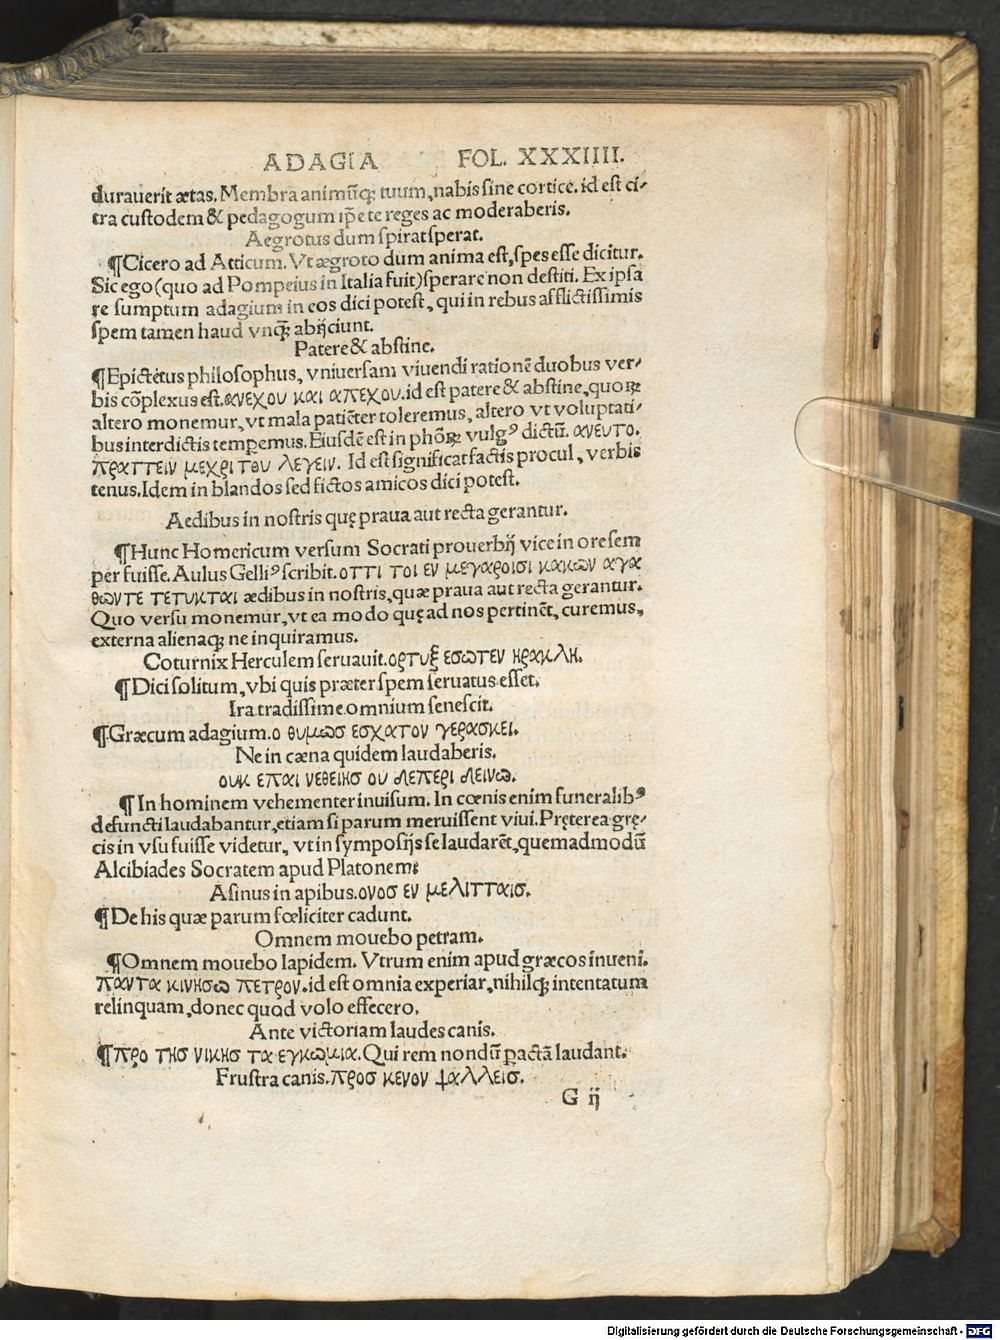 ADAGIA FOL. XXXIIII.
durauerit ætas. Membra animūq; tuum, nabis sine cortice. id est ci-
tra custodem & pedagogum ip̄e te reges ac moderaberis.
Aegrotus dum spirat sperat.
¶Cicero ad Atticum. Vt ægroto dum anima est, spes esse dicitur.
Sic ego (quo ad Pompeius in Italia fuit) sperare non destiti. Ex ipsa
re sumptum adagium in eos dici potest, qui in rebus afflictissimis
spem tamen haud vnq̄; abijciunt.
Patere & abstine.
¶Epictetus philosophus, vniuersam viuendi rationē duobus ver-
bis cōplexus est. ανεχου και απεχου. id est patere & abstine, quoꝝ
altero monemur, vt mala patiēter toleremus, altero vt voluptati-
bus interdictis temꝑemus. Eiusdē est in phōꝝ vulgꝰ dictū. ανευτο.
πραττειν μεχρι του λεγειν. Id est significat factis procul, verbis
tenus. Idem in blandos sed fictos amicos dici potest.
Aedibus in nostris quę praua aut recta gerantur.
¶Hunc Homericum versum Socrati prouerbij vice in ore sem
per fuisse. Aulus Gelliꝰ scribit. οττι τοι εν μεγαροισι κακων αγα
θωντε τετυκται ædibus in nostris, quæ praua aut recta gerantur.
Quo versu monemur, vt ea modo quę ad nos pertinēt, curemus,
externa alienaq; ne inquiramus.
Coturnix Herculem seruauit. ορτυξ εσωτεν ηρακλη.
¶Dici solitum, vbi quis præter spem seruatus esset.
Ira tradissime omnium senescit.
¶Græcum adagium. ο θυμωσ εσχατον γερασκει.
Ne in cæna quidem laudaberis.
ουκ επαι νεθειησ ου δεπερι δεινω.
¶In hominem vehementer inuisum. In cœnis enim funeralibꝰ
defuncti laudabantur, etiam si parum meruissent viui. Pręterea grę-
cis in vsu fuisse videtur, vt in symposijs se laudarēt, quemadmodū
Alcibiades Socratem apud Platonem:
Asinus in apibus. ονοσ εν μελιτταισ.
¶De his quæ parum fœliciter cadunt.
Omnem mouebo petram.
¶Omnem mouebo lapidem. Vtrum enim apud græcos inueni.
παντα κινησω πετρον. id est omnia experiar, nihilq; intentatum
relinquam, donec quod volo effecero.
Ante victoriam laudes canis.
¶προ τησ νικησ τα εγκωμια. Qui rem nondū ꝑactā laudant.
Frustra canis. προσ κενον ψαλλεισ.
G ij
Digitalisierung gefördert durch die Deutsche Forschungsgemeinschaft - DFG